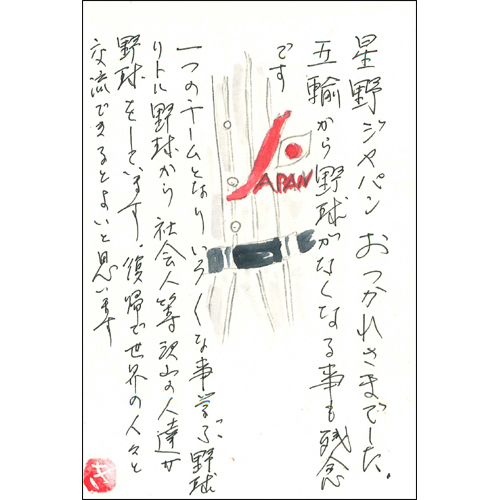 星野ジャパン おつかれさまでした。
五輪から野球がなくなる事も残念
です
一つのチームとなりいろ〱な事学ぶ野球
リトル野球から社会人等沢山の人達が
野球をしています。復帰で世界の人々と
交流できるとよいと思います
JAPAN
き